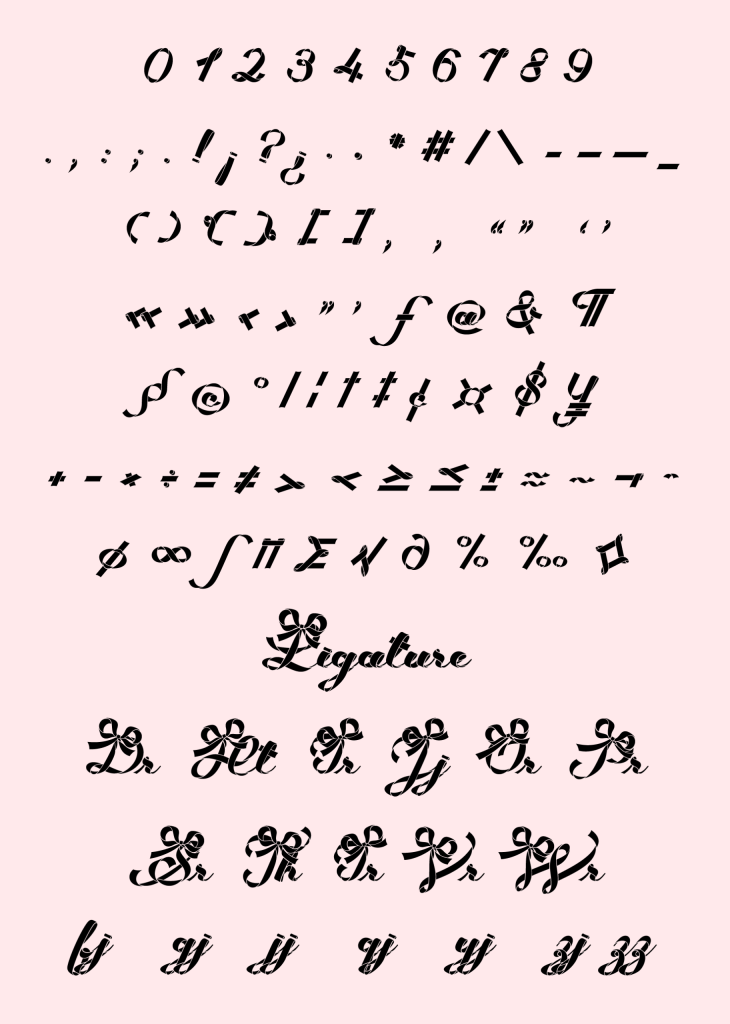 0 1 2 3 4 5 6 7 8 9
. , : ; . ! ¡ ? ¿ · · * # / \ - – — _
( ) { } [ ] , , “ ” ‘ ’
« » ‹ › " ' ƒ @ & ¶
§ © ° | ¦ † ‡ ¢ ¤ $ ¥
+ − × ÷ = ≠ > < ≥ ≤ ± ≈ ~ ¬ ^
ø ∞ ∫ π Σ √ ∂ % ‰ ◊
Ligature
Dr Ir Jj Or Pr
Sr Th Tr Vr Wr
fj gj jj qj yj zj zz